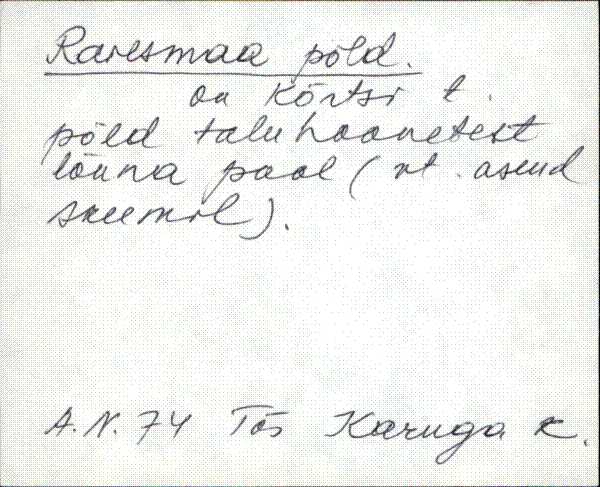 Raresmaa põld.
on Kõrtsi t.
põld taluhoonetest
lõuna pool (vt. asend
skeemil).
A.N. 74 Tõs Karuga k.